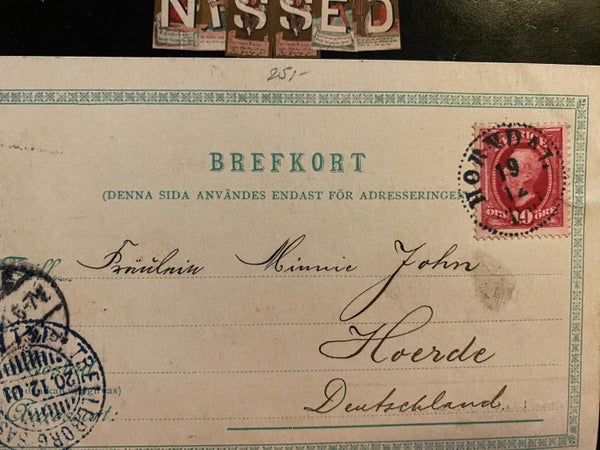 NISSED
25,-
BREFKORT
(DENNA SIDA ANVÄNDES ENDAST FÖR ADRESSERINGEN
HORNDAL
19
12
ÖRE 10 ÖRE
Till Fräulein Minnie John
Hoerde
Deutschland.
TRELLEBORG SAS
20.12.01